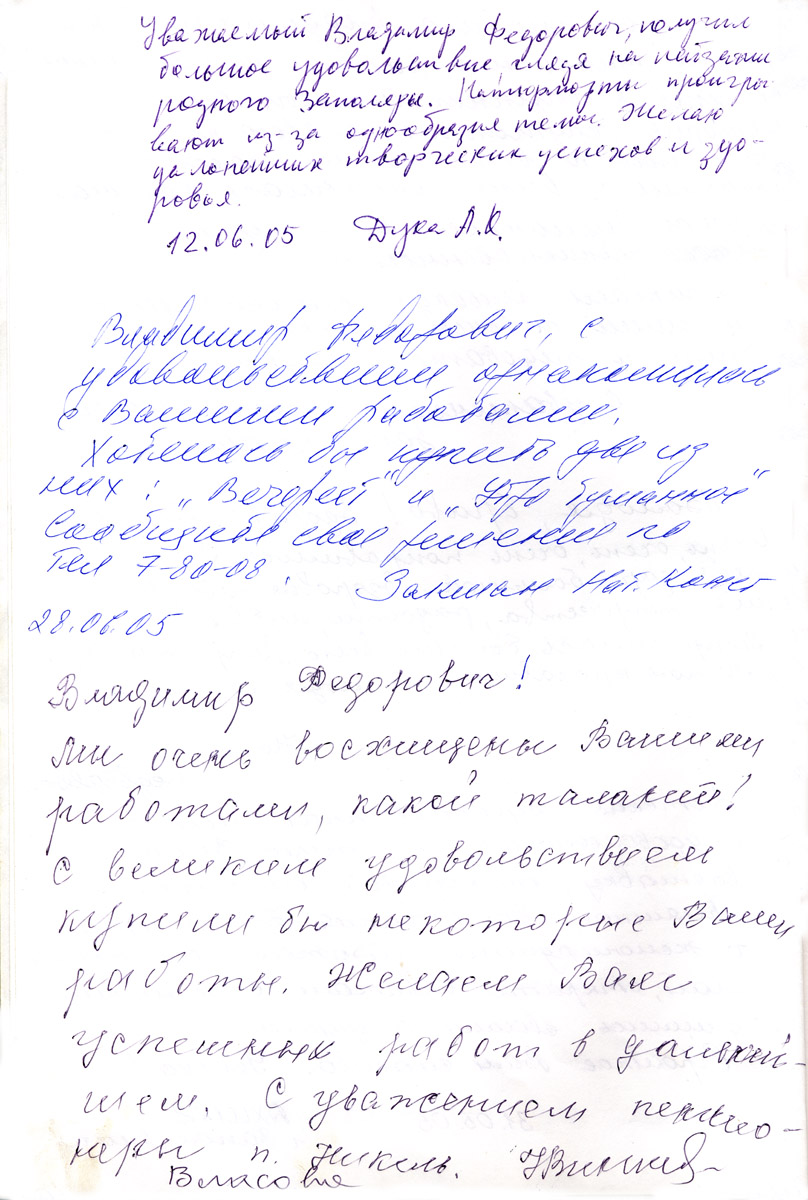 Уважаемый Владимир Федорович, получил
большое удовольствие, глядя на пейзажи
родного Заполярья. Натюрморты проигры-
вают из-за однообразия темы. Желаю
дальнейших творческих успехов и здо-
ровья.
12.06.05 Дука А.К.
Владимир Федорович, с
удовольствием ознакомилась
с Вашими работами.
Хотелось бы купить две из
них: „Вечереет" и „Утро туманное"
Сообщите свое решение по
тел 7-80-08. Закман Нат. Конст
28.06.05
Владимир Федорович!
Мы очень восхищены Вашими
работами, какой талант!
С великим удовольствием
купили бы некоторые Ваши
работы. Желаем Вам
успешных работ в дальней-
шем. С уважением пенсио-
неры п. Никель.
Власовы